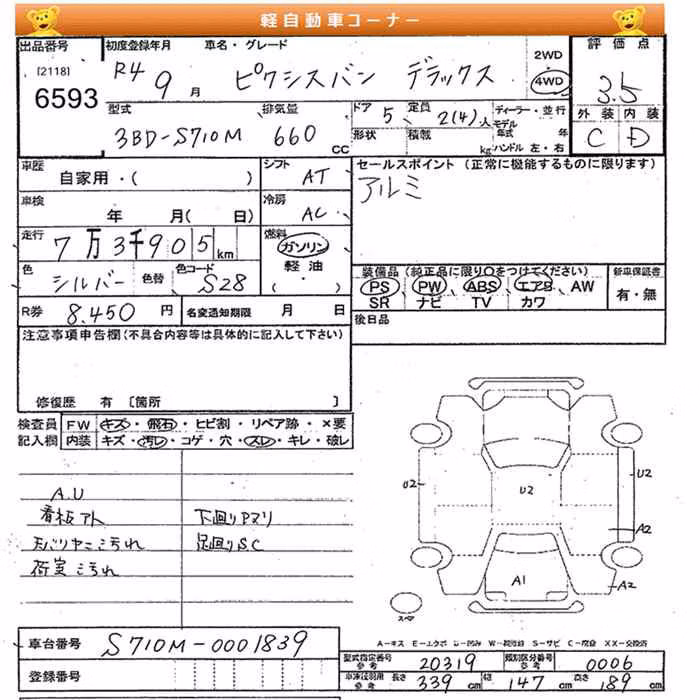 軽自動車コーナー
出品番号 初度登録年月 車名・グレード 評価点
[2118]
6593
R4 9月 ピクシスバン デラックス
2WD
4WD
3.5
型式 排気量 ドア 5 定員 2(4)人 ディーラー・並行
モデル年式 年
外装 内装
3BD-S710M 660 CC 形状 積載 kg ハンドル 左・右
C D
車歴 自家用・( ) シフト AT
セールスポイント (正常に機能するものに限ります)
アルミ
車検 年 月( 日) 冷房 AC
走行 7万3千905km 燃料 ガソリン
軽油
( ・ )
色 シルバー 色替 色コード S28
装備品 (純正品に限り○をつけてください) 新車保証書
PS、PW、ABS、エアB、AW 有・無
SR ナビ TV カワ
R券 8,450円 名変通知期限 月 日
後日品
注意事項申告欄(不具合内容等は具体的に記入して下さい)
修復歴 有 〔箇所 〕
検査員 FW キズ・飛石・ヒビ割・リペア跡・×要
記入欄 内装 キズ・汚レ・コゲ・穴・スレ・キレ・破レ
A.U
看板アト 下廻りPマリ
天バリヤニこうれ 足廻りS.C
荷室こうれ
U2
U2
U2
A2
A1
A2
スペア
A-キズ E-エクボ U-凹み W-補修跡 S-サビ C-腐食 XX-交換済
車台番号 S710M-0001839
型式指定番号 参考 20319 類別区分番号 参考 0006
登録番号
長さ 339cm 幅 147cm 高さ 189cm